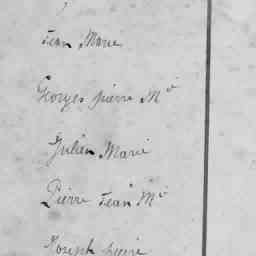 Jean Marie
Georges pierre Mie
Julien Marie
Pierre Jean Mie
Joseph pierre